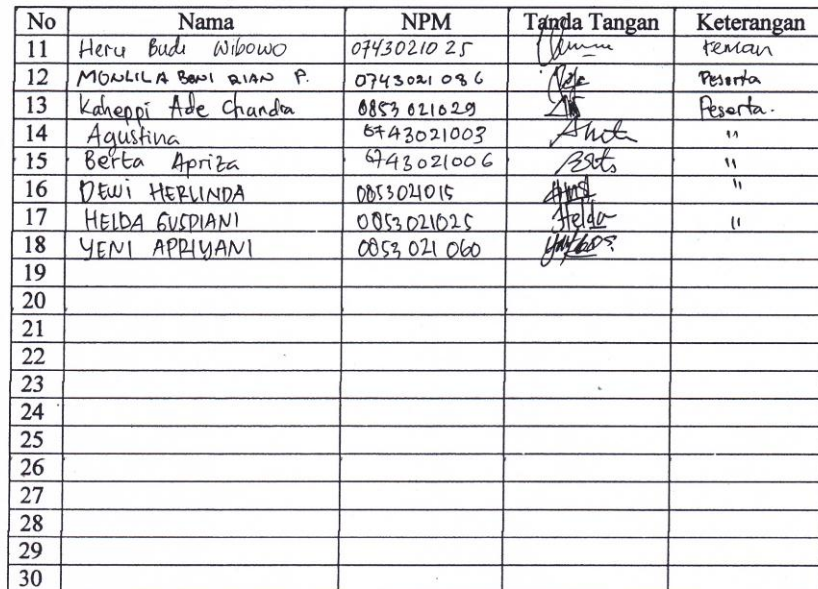 No Nama NPM Tanda Tangan Keterangan
11 Heru Budi Wibowo 0743021025 teman
12 MONLILA BENI RIAN P. 0743021086 Peserta
13 Kaheppi Ade Chandra 0853021029 Peserta.
14 Agustina 0743021003 "
15 Berta Apriza 0743021006 "
16 DEWI HERLINDA 0853021015 "
17 HELDA GUSDIANI 0853021025 Helda "
18 YENI APRIYANI 0853 021 060
19
20
21
22
23
24
25
26
27
28
29
30